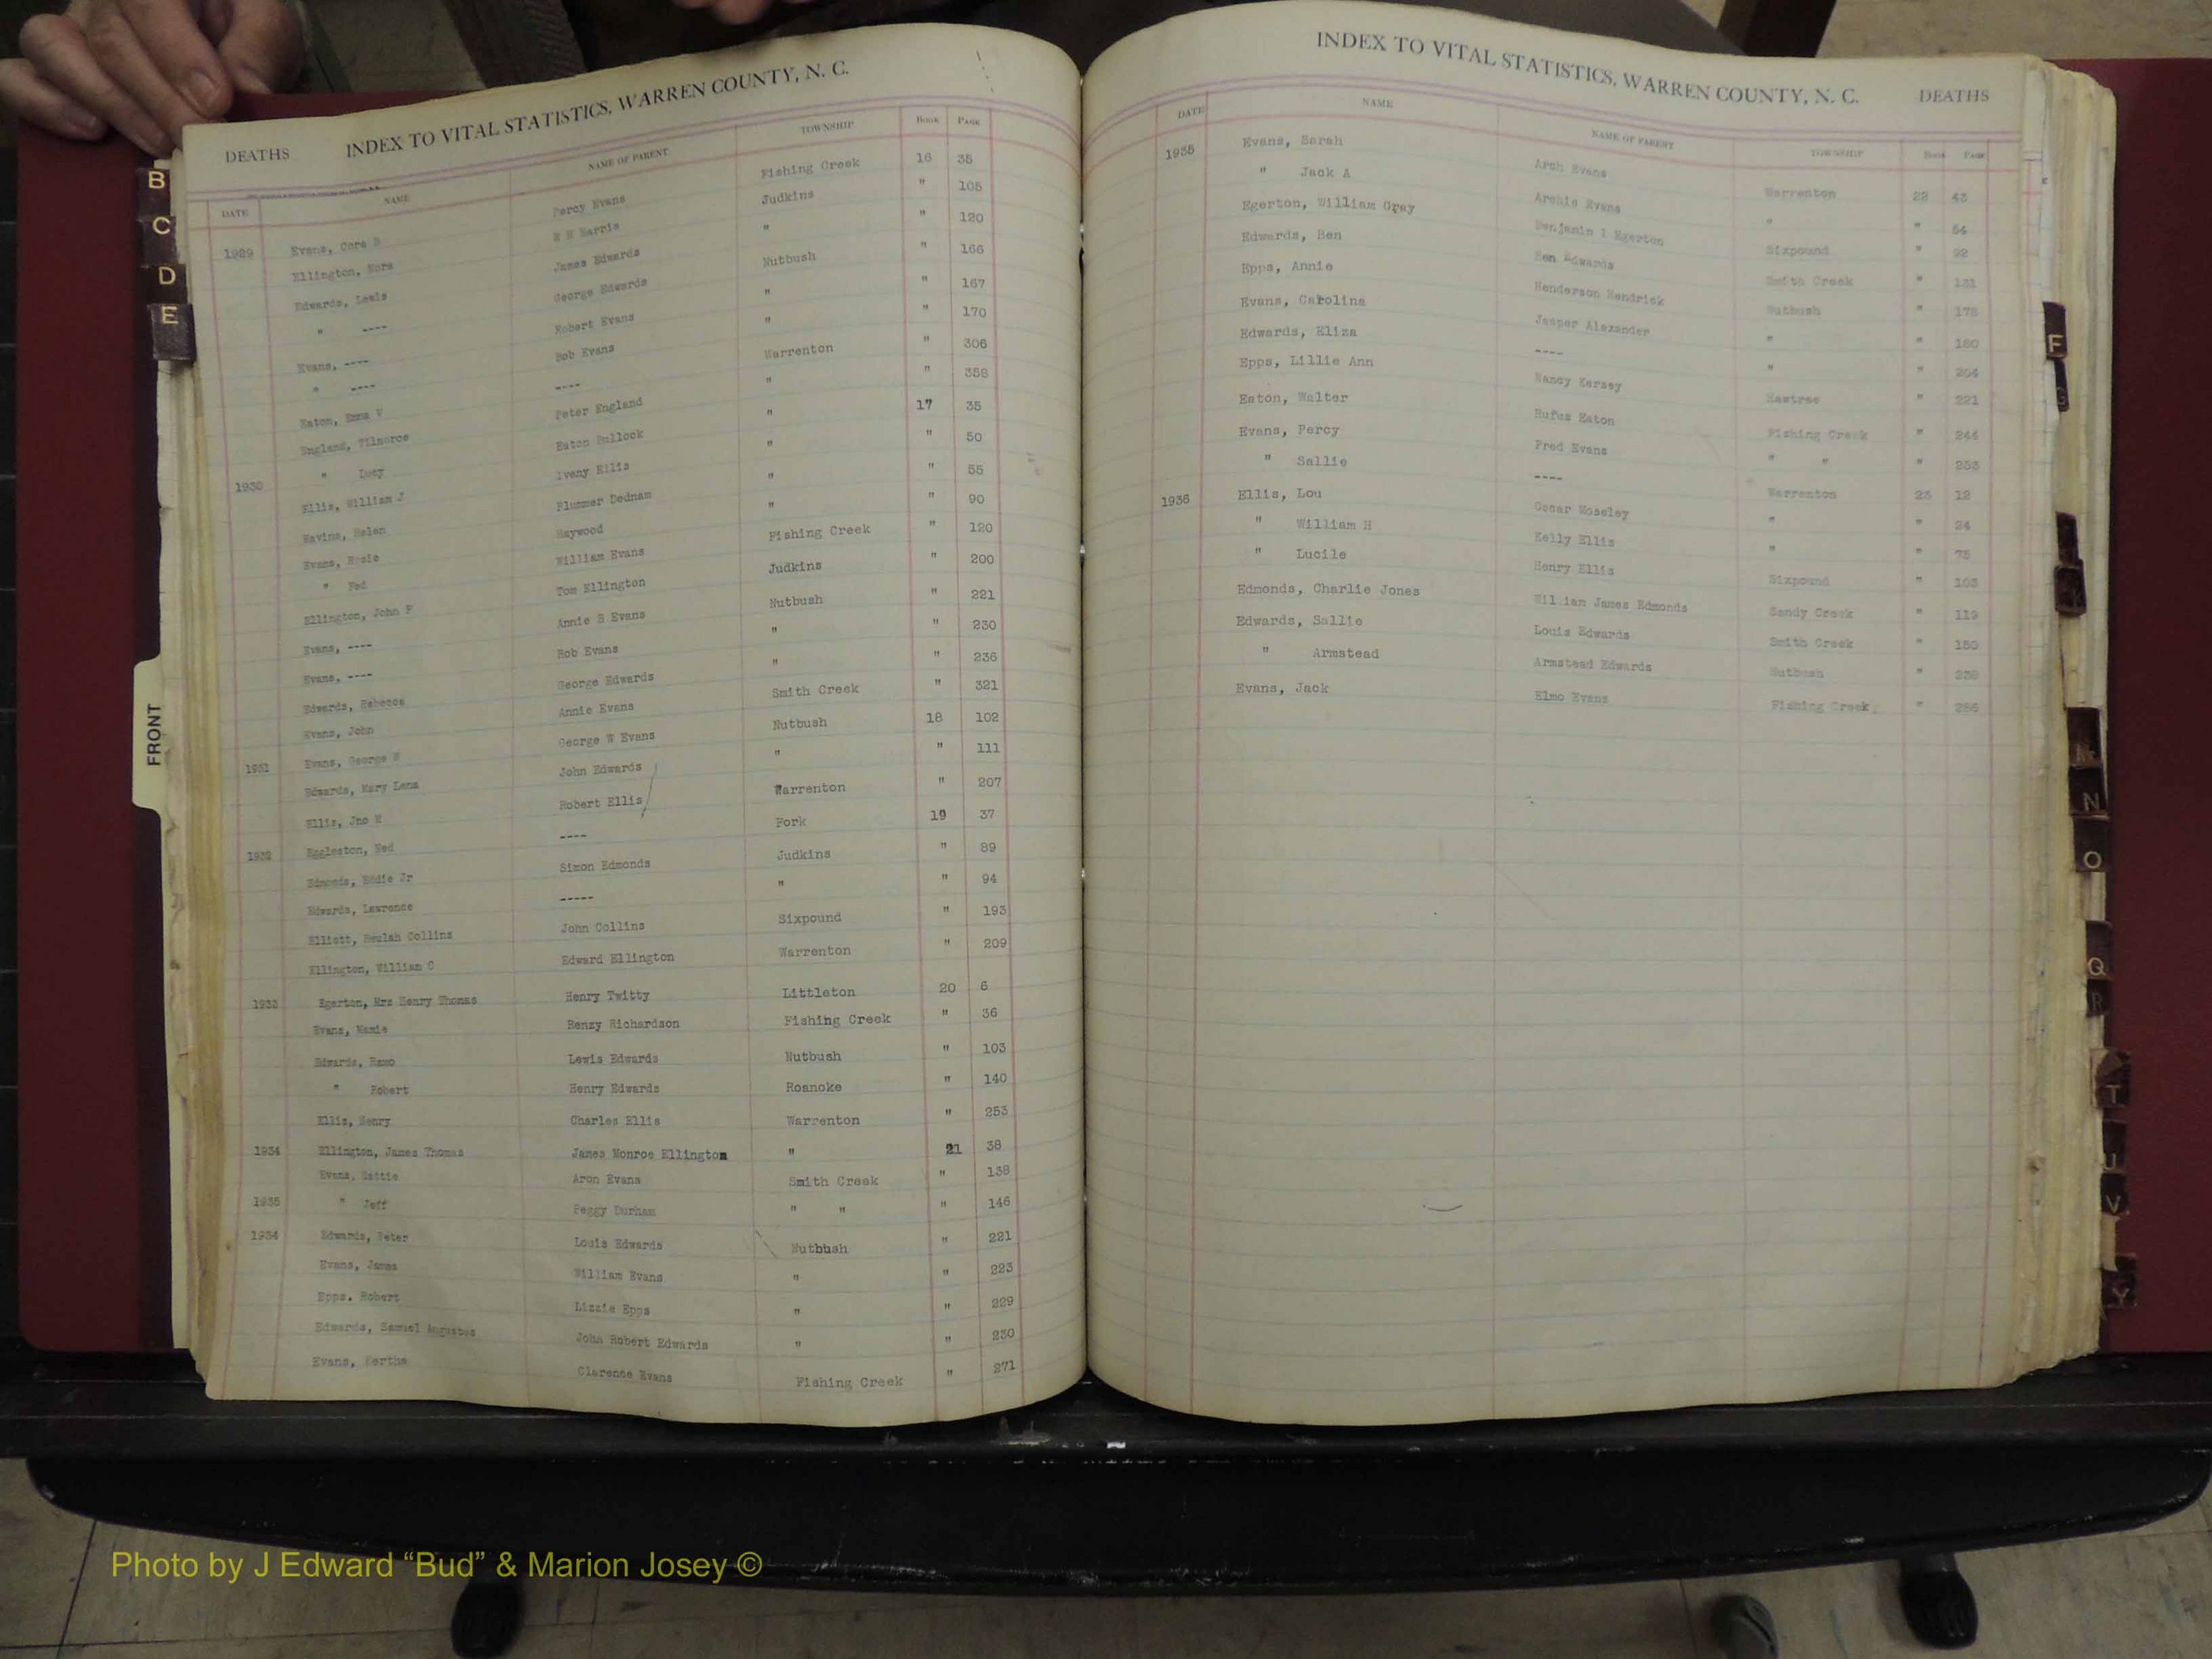 DEATHS INDEX TO VITAL STATISTICS, WARREN COUNTY, N. C.
DATE NAME NAME OF PARENT TOWNSHIP BOOK PAGE
1929 Evans, Cora B Percy Evans Fishing Creek 16 35
Ellington, Nora E H Harris Judkins " 105
Edwards, Lewis James Edwards " " 120
" ---- George Edwards Nutbush " 166
Evans, ---- Robert Evans " " 167
" ---- Bob Evans " " 170
Eaton, Emma V ---- Warrenton " 306
England, Peter England " " 358
" Lucy Eaton Bullock " 17 35
1930 Ellis, William J Iveny Ellis " " 50
Eavins, Helen Plummer Dednam " " 55
Evans, Rosie Haywood " " 90
" Fed William Evans Fishing Creek " 120
Ellington, John F Tom Ellington Judkins " 200
Evans, ---- Annie B Evans Nutbush " 221
Evans, ---- Bob Evans " " 230
Edwards, Rebecca George Edwards " " 236
Evans, John Annie Evans Smith Creek " 321
1931 Evans, George W George W Evans Nutbush 18 102
Edwards, Mary Lena John Edwards " " 111
Ellis, Jno R Robert Ellis Warrenton " 207
1932 Eggleston, Ned ---- Fork 19 37
Edmonds, Eddie Jr Simon Edmonds Judkins " 89
Edwards, Lawrence ----- " " 94
Elliott, Beulah Collins John Collins Sixpound " 193
Ellington, William C Edward Ellington Warrenton " 209
1933 Egerton, Mrs Henry Thomas Henry Twitty Littleton 20 6
Evans, Mamie Renzy Richardson Fishing Creek " 36
Edwards, Lewis Edwards Nutbush " 103
" Robert Henry Edwards Roanoke " 140
Ellis, Henry Charles Ellis Warrenton " 253
1934 Ellington, James Thomas James Monroe Ellington " 21 38
Evans, Hattie Aron Evans Smith Creek " 138
1935 " Jeff Peggy Durham " " " 146
1934 Edwards, Peter Louis Edwards Nutbush " 221
Evans, James William Evans " " 223
Epps. Robert Lizzie Epps " " 229
Edwards, Samuel Augustus John Robert Edwards " " 230
Evans, Bertha Clarence Evans Fishing Creek " 271
INDEX TO VITAL STATISTICS, WARREN COUNTY, N. C. DEATHS
DATE NAME NAME OF PARENT TOWNSHIP BOOK PAGE
1935 Evans, Sarah Arch Evans Warrenton 22 43
" Jack A Archie Evans " " 64
Egerton, William Gray Benjamin I Egerton Sixpound " 92
Edwards, Ben Ben Edwards Smith Creek " 131
Epps, Annie Henderson Hendrick Nutbush " 175
Evans, Carolina Jasper Alexander " " 180
Edwards, Eliza ---- " " 204
Epps, Lillie Ann Nancy Kersey Hawtree " 221
Eaton, Walter Rufus Eaton Fishing Creek " 244
Evans, Percy Fred Evans " " " 253
" Sallie ---- Warrenton 23 12
1936 Ellis, Lou Oscar Moseley " " 24
" William H Kelly Ellis " " 75
" Lucile Henry Ellis Sixpound " 103
Edmonds, Charlie Jones William James Edmonds Sandy Creek " 119
Edwards, Sallie Louis Edwards Smith Creek " 150
" Armstead Armstead Edwards Nutbush " 238
Evans, Jack Elmo Evans Fishing Creek " 286
B
C
D
E
FRONT
F
G
N
O
Q
R
T
U
V
Y
Photo by J Edward “Bud” & Marion Josey ©